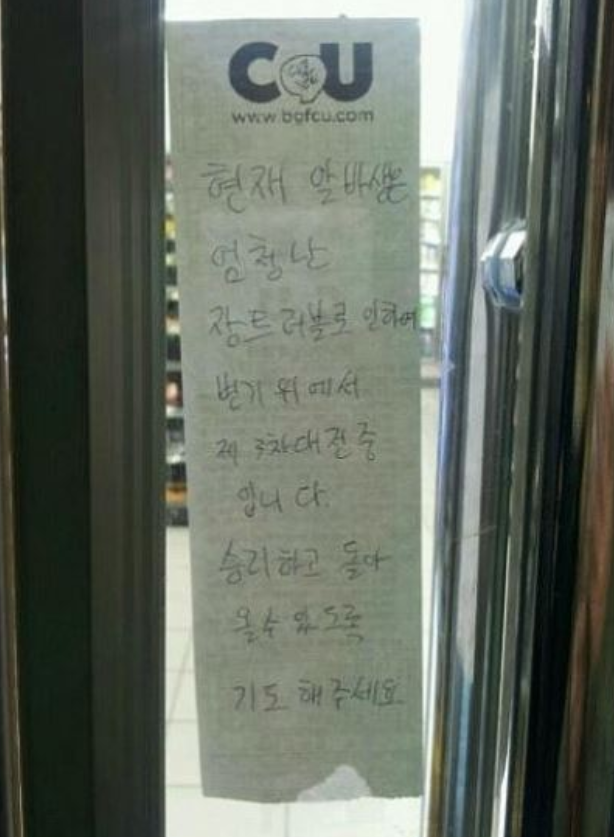 CU
www.bgfcu.com
현재 알바생은
엄청난
장트러블로 인하여
변기 위에서
제 3차대전중
입니다.
승리하고 돌아
올수 있도록
기도 해주세요